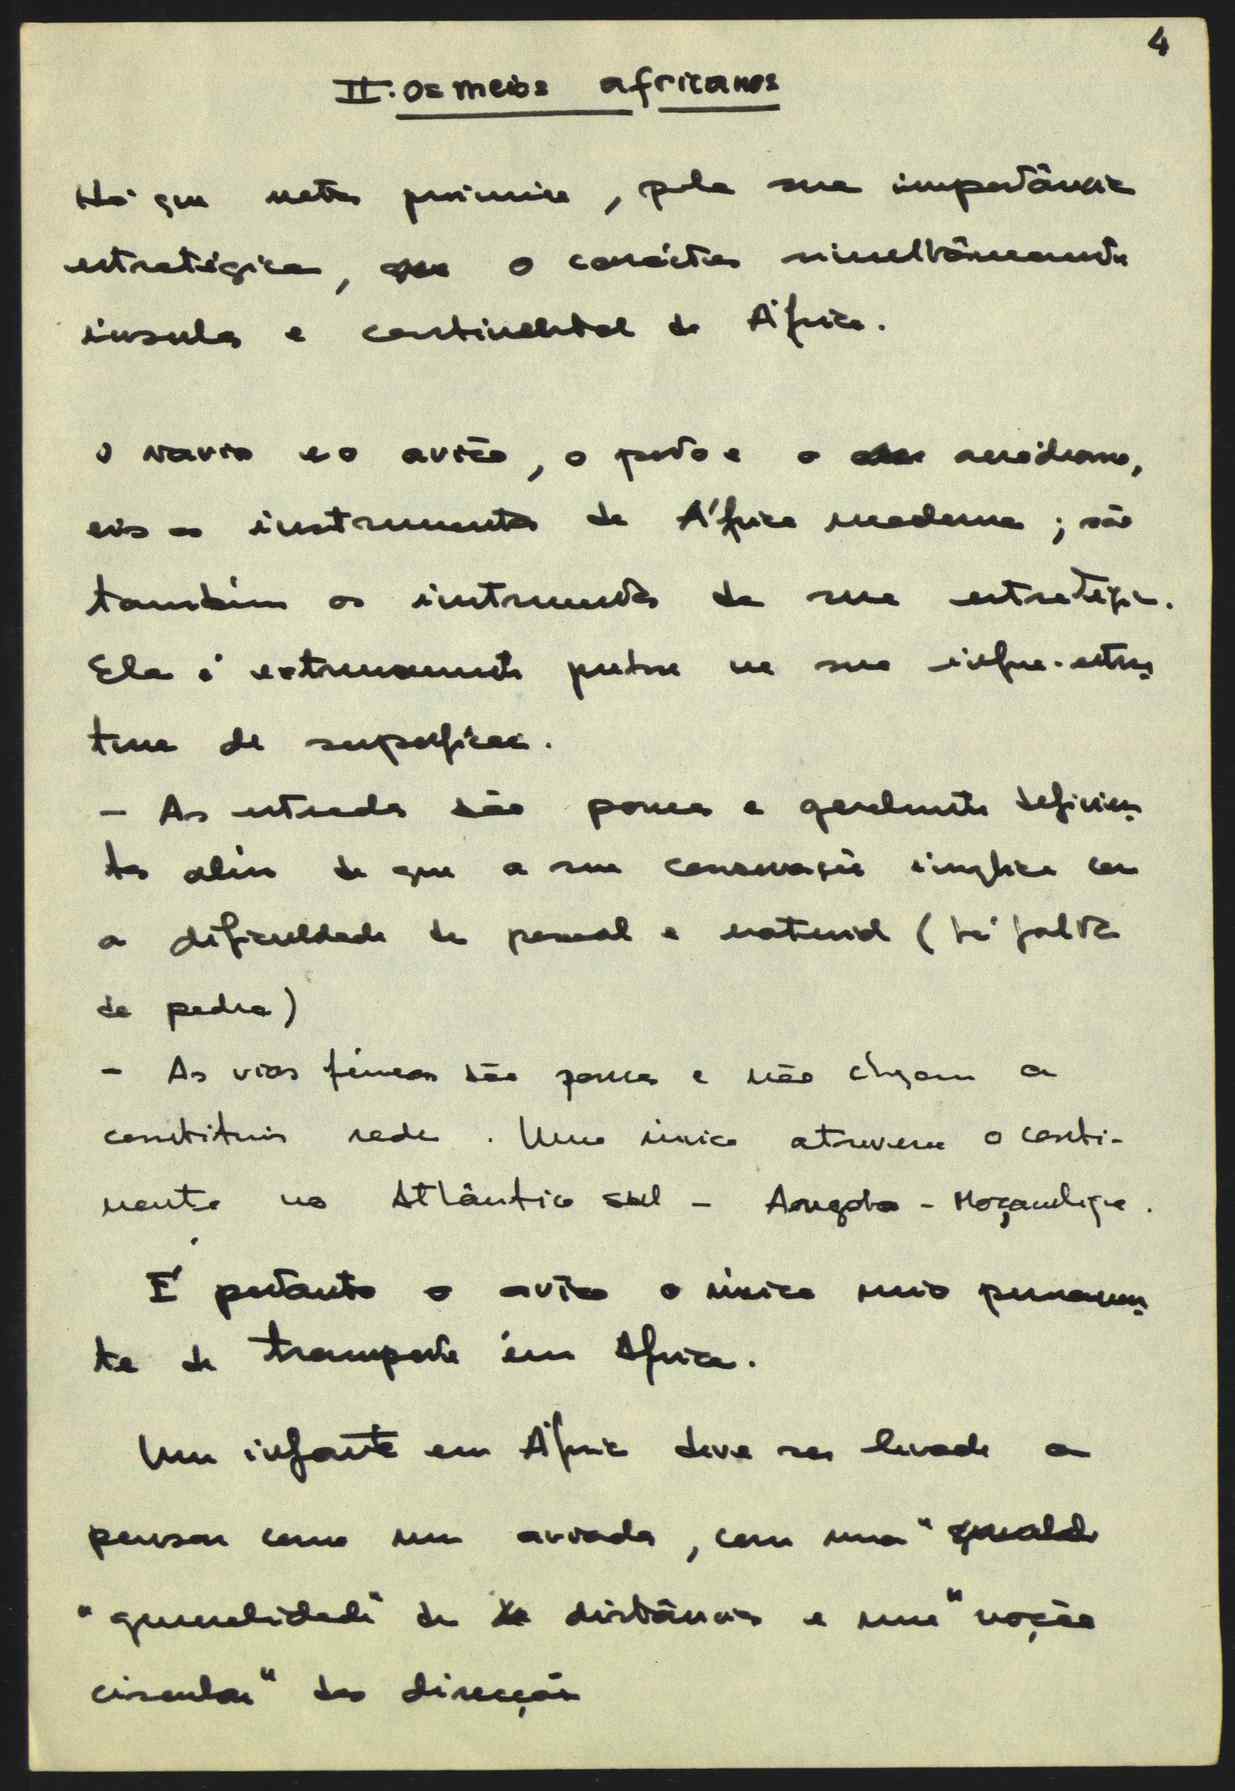 4
II. Os meios africanos
Há que notar primeiro, pela sua importância
estratégica, o carácter simultâneamente
insular e continental de África.
O navio e o avião, o porto e o aeródromo,
eis os instrumentos de África moderna; são
também os instrumentos da sua estratégia.
Ela é extremamente pobre na sua infra-estru
tura de superfície.
- As estradas são poucas e geralmente deficien
tes além de que a sua conservação implica com
a dificuldade de pessoal e material (há falta
de pedra)
- As vias férreas são poucas e não chegam a
constituir rede. Uma única atravessa o conti-
nente no Atlântico sul - Angola - Moçambique.
É portanto o avião o único meio permanen
te de transporte em África.
Um infante em África deve ser levado a
pensar como um aviador, com uma "
"generalidade" de distâncias e uma "noção
circular" das direcções